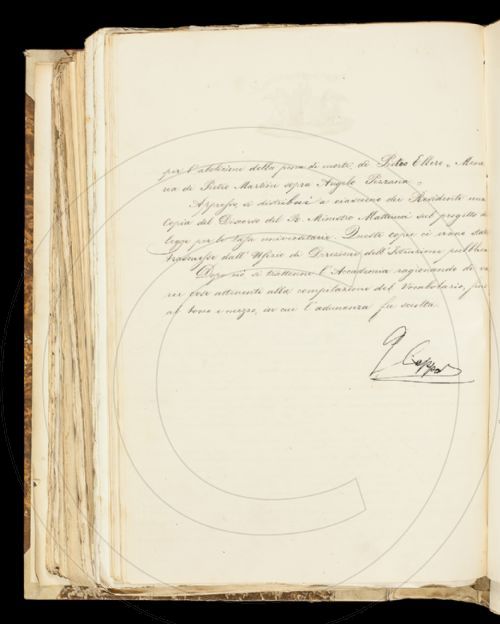 per l'abolizione della pena di morte, di Pietro Ellero, Memo
ria di Pietro Martini sopra Angelo Pezzana.
Appresso si distribuì a ciascuno dei Residenti una
Copia del Discorso del R. Ministro Matteucci sul progetto di
legge per le tasse universitarie. Queste copie ci erano state
trasmesse dall'Ufizio di Direzione dell'Istruzione pubblica
Dopo ciò si trattenne l'Accademia ragionando di va
rie cose attinenti alla compilazione del Vocabolario, fino
al tocco e mezzo, in cui l'adunanza fu sciolta.
G Capponi